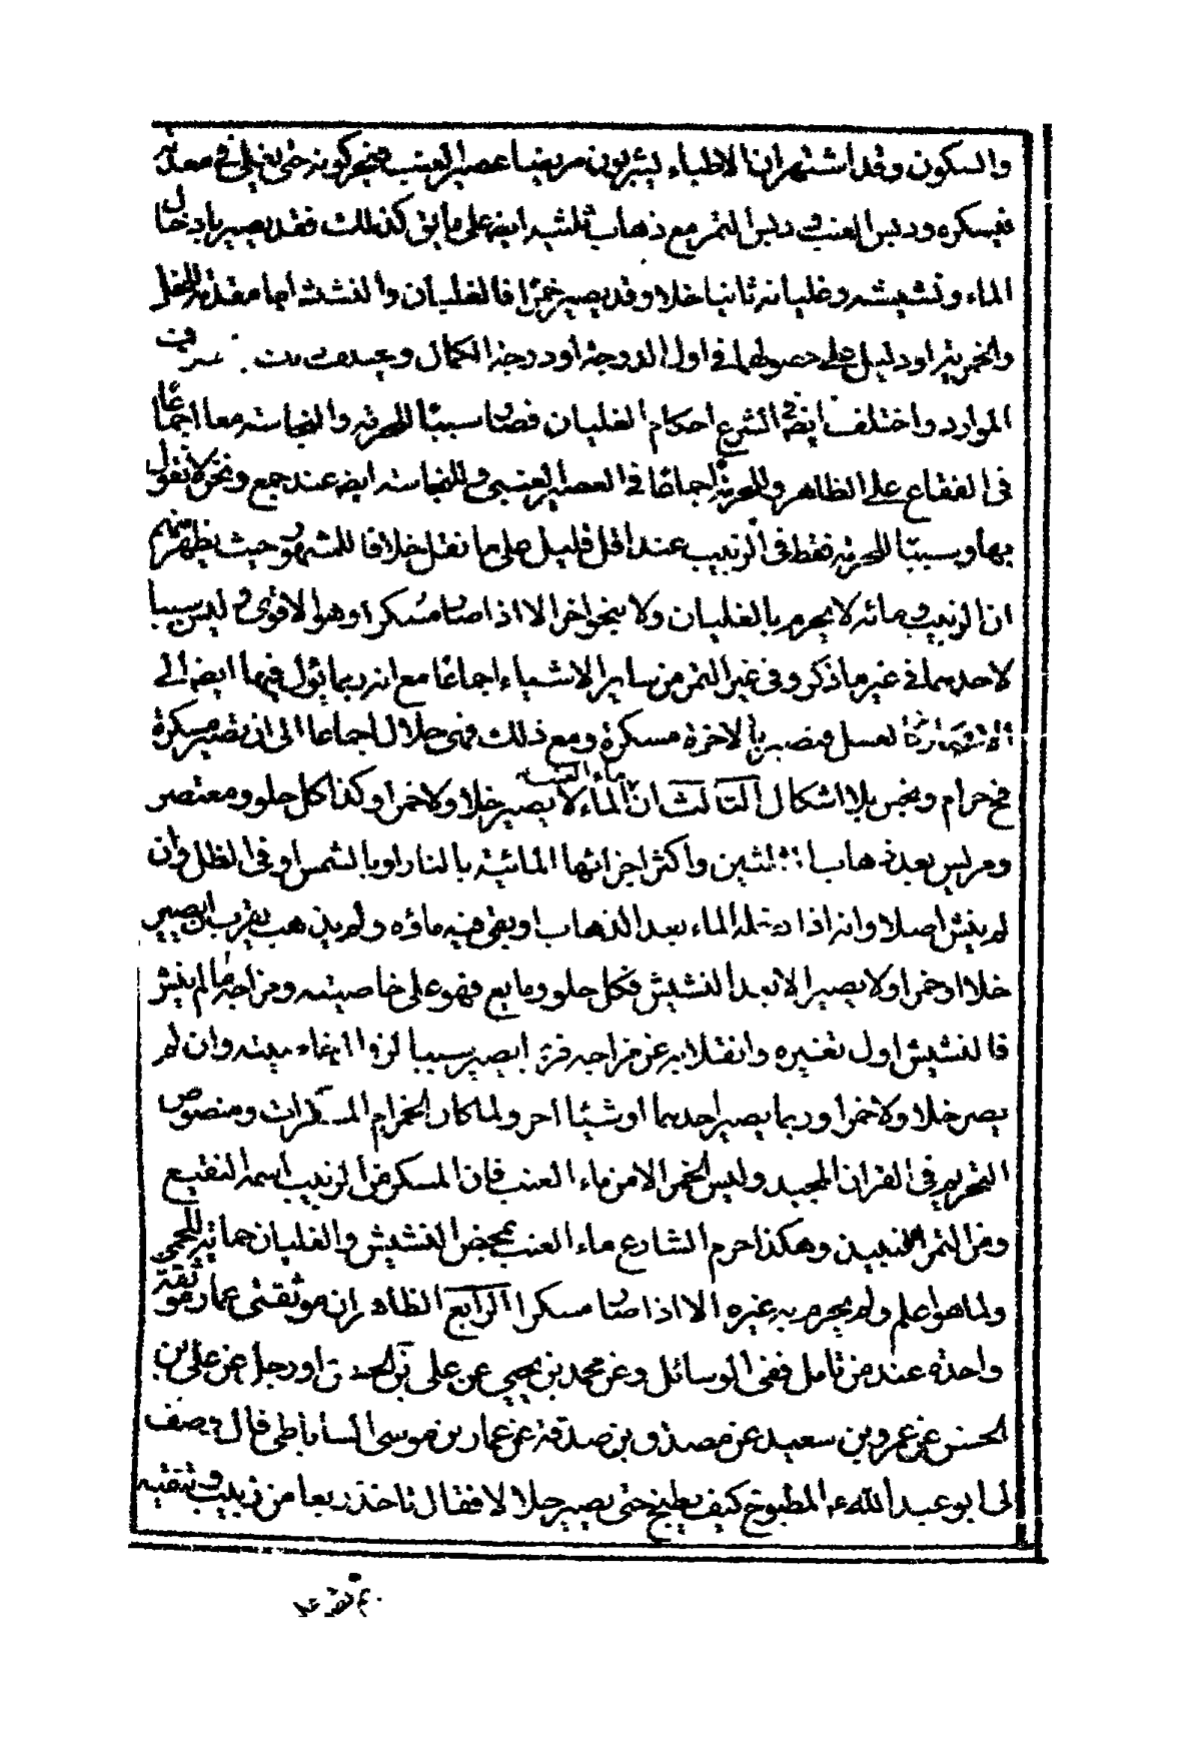 والسكون وقد اشتهر ان الاطباء يشربون مريضا عصير العنب فيتحركونه حتى يغلى فى معدته
فيسكره ودبس العنب ودبس التمر مع ذهاب ثلثيه ايضا على ما بقى كذلك فقد يصير بادخال
الماء ونشيشه وغليانه ثانيا خلا وقد يصير خمرا فالغليان والنشيش اما مقدمة للخل
والخمرية او دليل على حصولهما فى اول الدرجة او درجة الكمال وبحسب
الموارد واختلف ايضا فى الشرع احكام الغليان فصار سببا للحرمة والنجاسة معا اجماعا
فى الفقاع على الظاهر وللحرمة اجماعا فى العصير العنبى وللنجاسة ايضا عند جمع ونحن لا نقول
بها وسببا للحرمة فقط فى الزبيب عند اقل قليل على ما نقل خلافا للمشهور حيث يظهر منهم
ان الزبيب ومائه لا يحرم بالغليان ولا بنحو اخر الا اذا صار مسكرا وهو الاقوى وليس سببا
لاحدهما فى غير ما ذكر وفى غير التمر من ساير الاشياء اجماعا مع انه ربما يؤل فيها ايضا الى
العسل فيصير بالاخرة مسكرة ومع ذلك فهى حلال اجماعا الى ان تصير مسكرة
فح حرام ونجس بلا اشكال الثالث ان الماء لا يصير خلا ولا خمرا وكذا كل حلو ومعتصر
ماء العنب
ومريس بعد ذهاب الثلثين واكثر اجزائها المائية بالنار او بالشمس او فى الظل وان
لم ينش اصلا وانه اذا دخله الماء بعد الذهاب او بقى فيه ماؤه ولم يذهب يقرب ان يصير
خلا او خمرا ولا يصير الا بعد النشيش فكل حلو ومايع فهو على خاصيته ومزاجه ما لم ينش
فالنشيش اول تغيره وانقلابه عن مزاجه فربما يصير سببا لزوال بقاء ميته وان لم
يصر خلا ولا خمرا وربما يصير احدهما او شيئا اخر ولما كان الخمر ام المسكرات ومنصوص
التحريم فى القران المجيد وليس الخمر الا من ماء العنب فان المسكر من الزبيب اسمه النقيع
ومن التمر النبيذ وهكذا حرم الشارع ماء العنب بمحض النشيش والغليان حماية للحمى
ولما هو اعلم ولم يحرم به غيره الا اذا صار مسكرا الرابع الظاهر ان موثقتى عمار موثقة
واحدة عند من تامل ففى الوسائل وعن محمد بن يحيى عن على بن الحسن او رجل عن على بن
الحسن عن عمرو بن سعيد عن مصدق بن صدقة عن عمار بن موسى الساباطى قال وصف
لى ابو عبد الله ع المطبوخ كيف يطبخ حتى يصير حلالا فقال تاخذ ربعا من زبيب وتنقيه